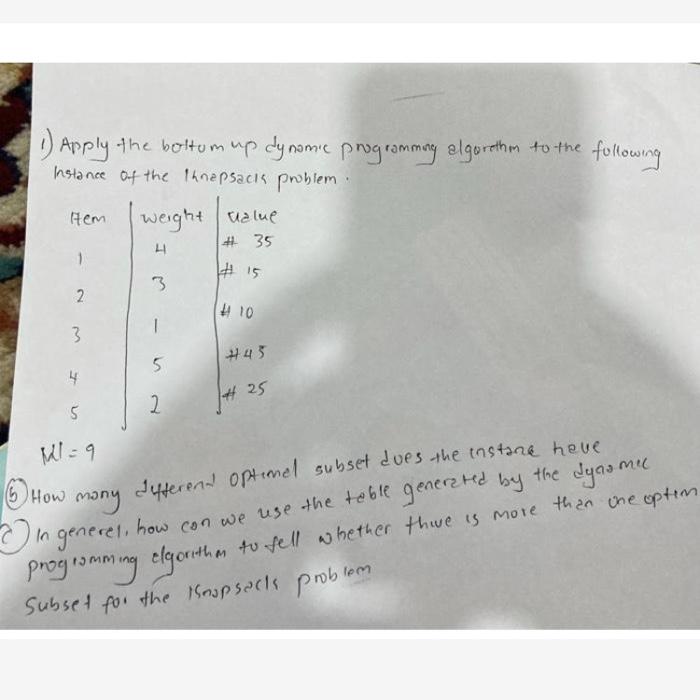 1) Apply the bottom up dynamic programming algorethm to the following
Instance of the Knapsack problem.
Item weight value
1 4 # 35
2 3 # 15
3 1 # 10
4 5 # 45
5 2 # 25
W = 9
(b) How many different optimal subset does the instane have
(c) In general, how can we use the table generated by the dynamic
programming algorithm to tell whether there is more than one optim
Subset for the Knapsack problem